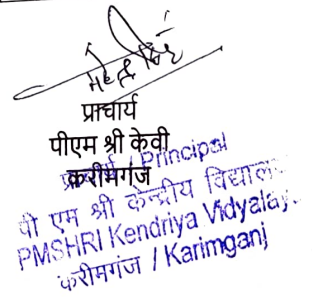 प्राचार्य
पीएम श्री केवी
करीमगंज
प्राचार्य / Principal
पी एम श्री केन्द्रीय विद्याल
PMSHRI Kendriya Vidyalay.
करीमगंज / Karimganj